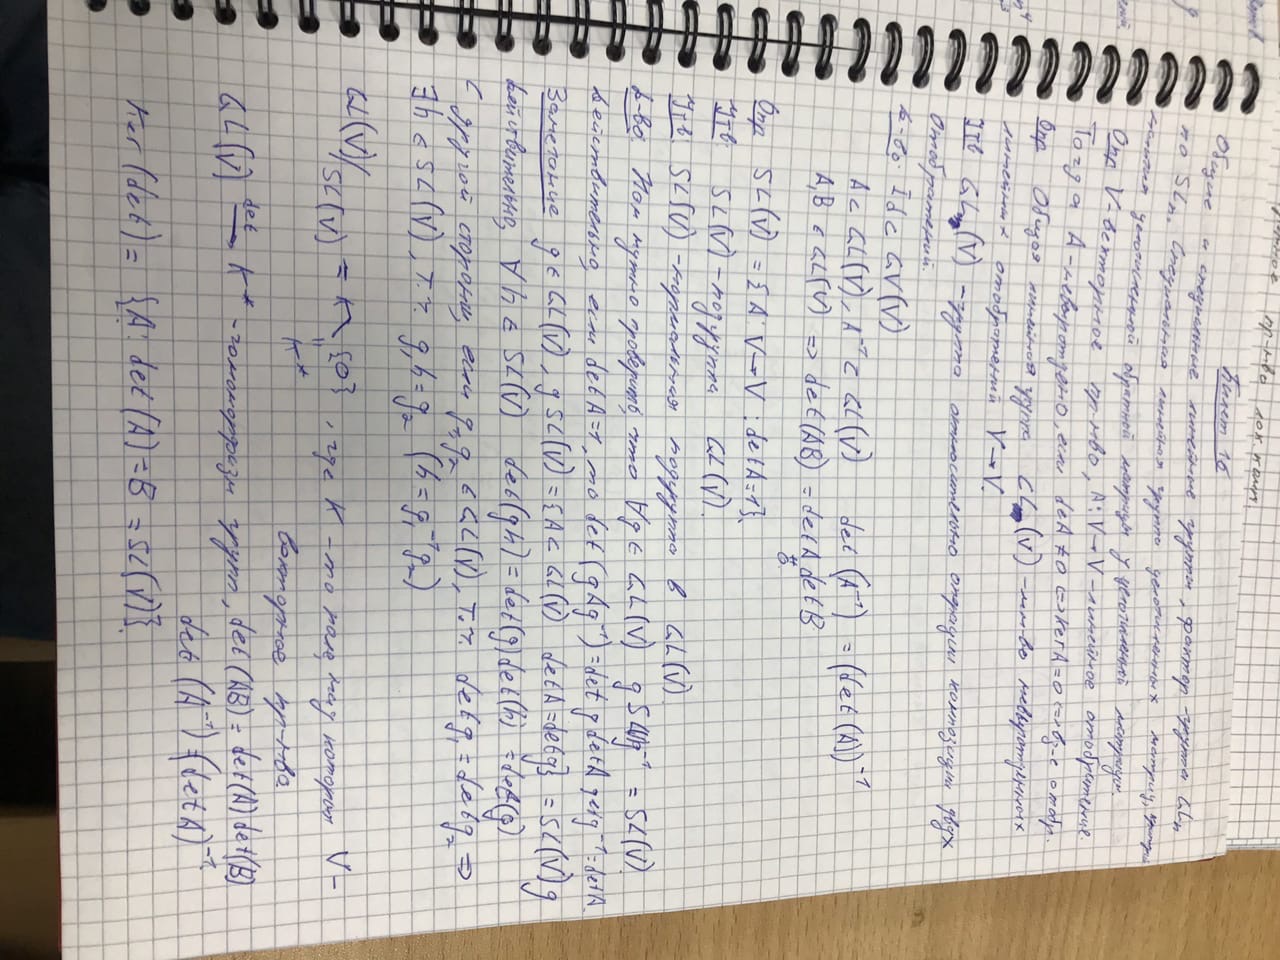 пр-нво лок. комп.
Билет 16
Общие и специальные линейные группы, фактор-группа GLn
по SLn. Специальная линейная группа целочисленных матриц, критерий
наличия целочисленной обратной матрицы у целочисленной матрицы.
Опр V-векторное пр-нво, A: V→V-линейное отображение.
Тогда A-невырождено, если detA≠0 ⇔ KerA=0 ⇔ вз-с отобр.
Опр Общая линейная група GL(V) -мн-во невырожденных
линейных отображений V→V.
Утв GL(V) -группа относительно операции композиции двух
отображений.
Д-во: Id ⊂ GV(V)
A ⊂ GL(V), A⁻¹ ⊂ GL(V) det (A⁻¹) = (det(A))⁻¹
A,B ∈ GL(V) ⇒ det(AB) = detA detB
≠
0.
Опр SL(V) = {A: V→V : detA=1}.
Утв: SL(V) -подгруппа GL(V).
Утв: SL(V) -нормальная подгруппа в GL(V).
Д-во: Нам нужно проверить, что ∀g ∈ GL(V) g SL(V)g⁻¹ = SL(V).
Действительно, если detA=1, то det (gAg⁻¹)=det g detA detg⁻¹=detA.
Замечание g ∈ GL(V), g SL(V) = {A ⊂ GL(V) detA=detg} = SL(V)g
Действительно, ∀ h ∈ SL(V) det(gh) = det(g)det(h) = det(g)
С другой стороны, если g₁,g₂ ∈ GL(V), т.ч. detg₁ = detg₂ ⇒
∃h ∈ SL(V), т.ч. g₁h = g₂ (h = g₁⁻¹g₂)
GL(V)/SL(V) = K \ {0}, где K -то поле, над которым V-
=
K*
векторное пр-нво.
GL(V) det→ K* -гомоморфизм групп, det(AB) = det(A) det(B)
det (A⁻¹) = (detA)⁻¹.
Ker (det) = {A: det(A) = B = SL(V)}.